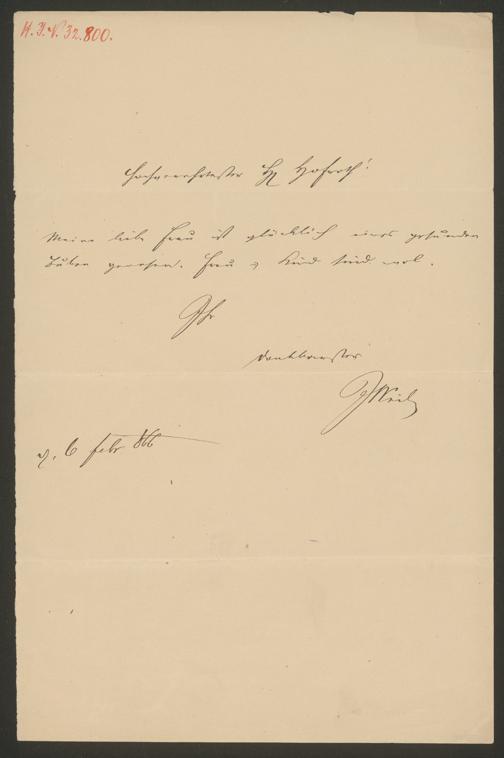 H. I. N. 32.800.
Hochverehrtester H Hofrath!
Meine liebe Frau ist glücklich eines gesunden
Buben genesen. Frau & Kind sind wol.
Ihr
dankbarster
JWeil
d. 6 Febr 866